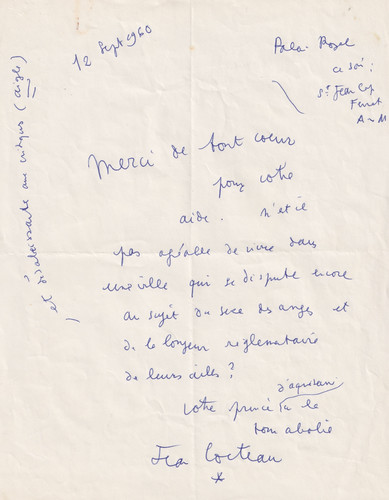 12 Sept 1960
Palais Royal
ce soir :
St Jean Cap
Ferrat
A-M
Merci de tout coeur
pour votre
aide. N'est il
pas agréable de vivre dans
une ville qui se dispute encore
au sujet du sexe des anges et
de la longueur réglementaire
de leurs ailes ?
Votre prince d'aquitaine à la
tour abolie
Jean Cocteau
et désobéissante aux (aigle)